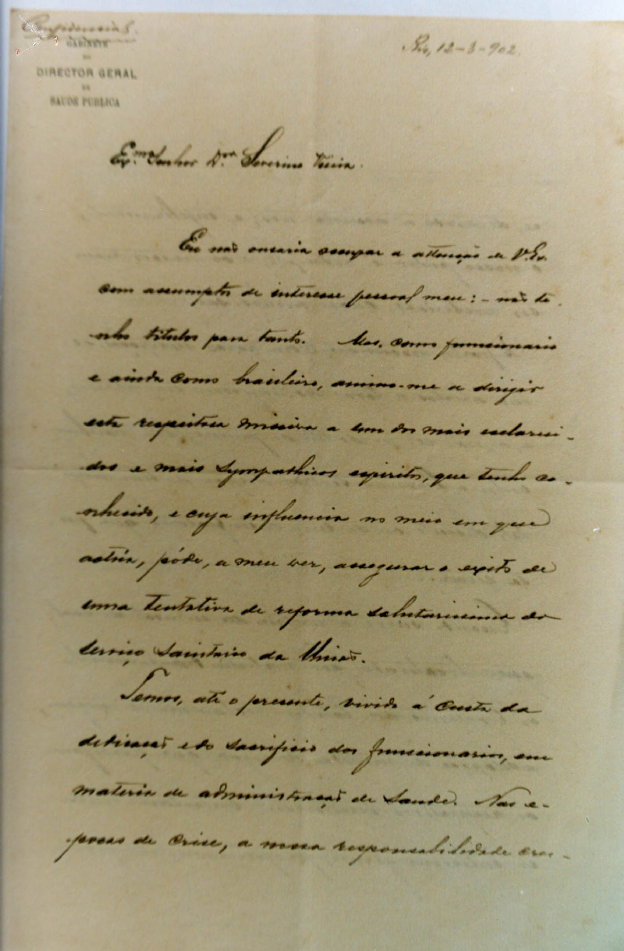 Confidencial.
GABINETE
DO
DIRECTOR GERAL
DE
SAUDE PUBLICA
Rio, 12-3-902.
Exmo Senhor Dor Severino Vieira.
Eu não ousaria occupar a attenção de V.Ex.
com assumptos de interesse pessoal meu: - não te-
nho titulos para tanto. Mas, como funccionario
e ainda como brasileiro, animo-me a dirigir
esta respeitosa missiva a um dos mais esclareci-
dos e mais sympathicos espiritos, que tenho co-
nhecido, e cuja influencia no meio em que
actúa, póde, a meu ver, assegurar o exito de
uma tentativa de reforma salutarissima do
serviço sanitario da União.
Temos, até o presente, vivido á custa da
dedicação e do sacrificio dos funccionarios, em
materia de administração de Saude. Nas e-
pocas de crise, a nossa responsabilidade cres-